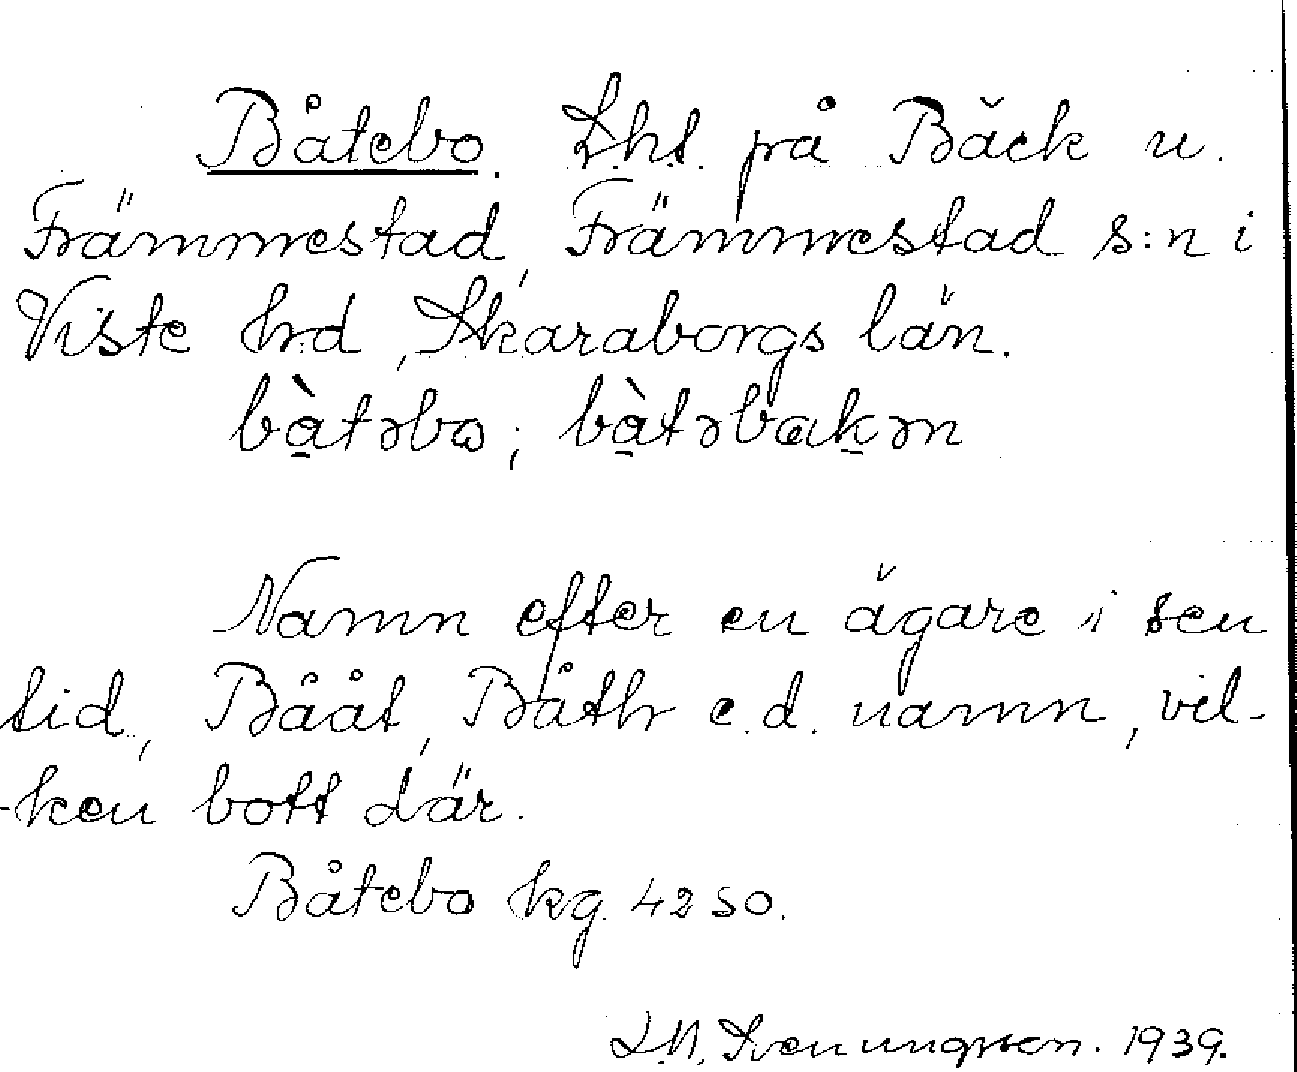 Båtebo. Lht. på Bäck u.
Främmestad, Främmestad s:n i
Viste hrd, Skaraborgs län.
bàtəbo; bàtəbakən
Namn efter en ägare i sen
tid, Bååt, Båth e.d. namn, vil-
-ken bott där.
Båtebo kg. 42 so.
1939.